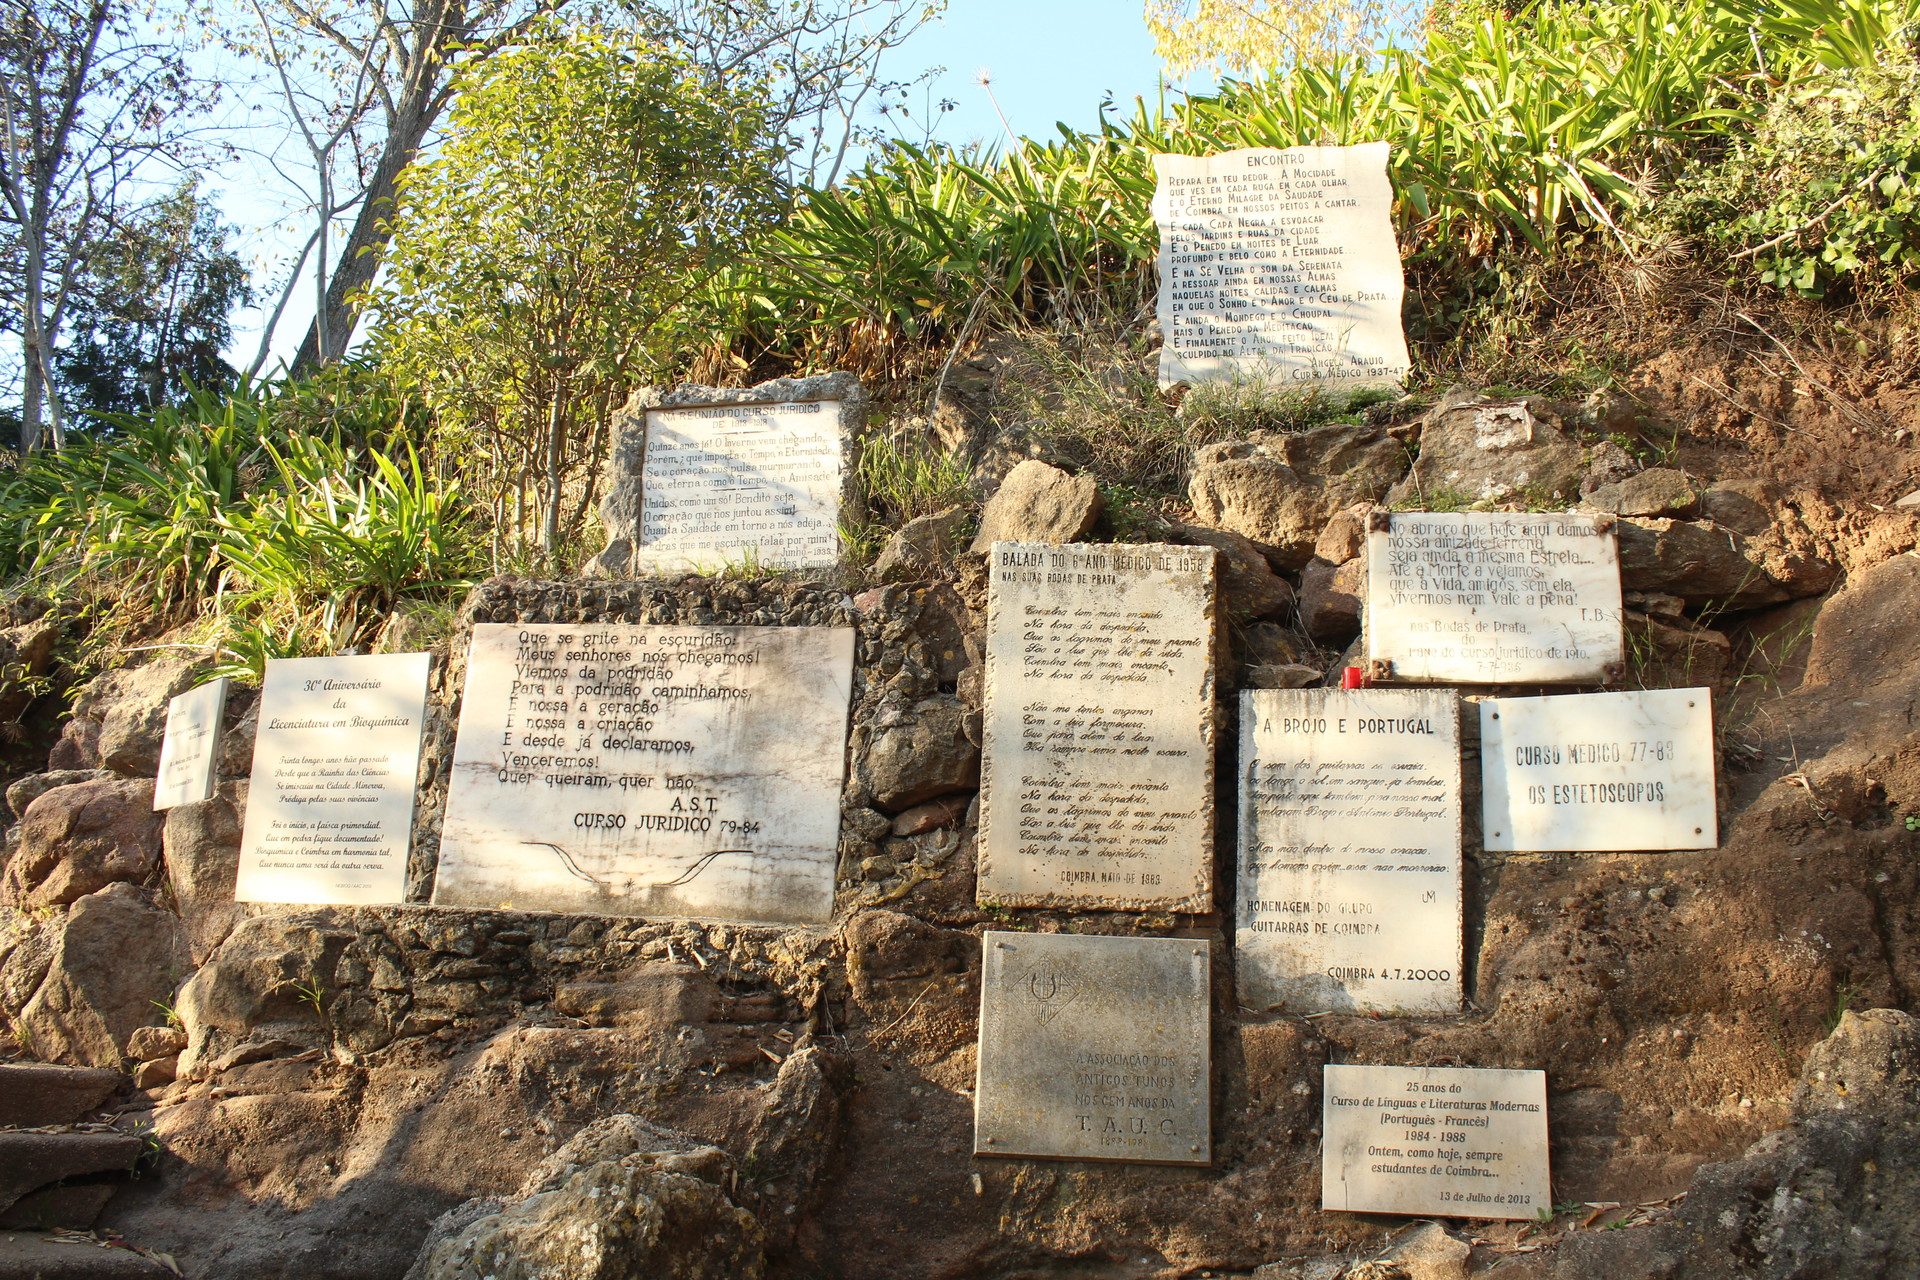 ENCONTRO
REPARA EM TEU REDOR... A MOCIDADE
QUE VES EM CADA RUGA EM CADA OLHAR
E O ETERNO MILAGRE DA SAUDADE
DE COIMBRA EM NOSSOS PEITOS A CANTAR.
E CADA CAPA NEGRA A ESVOACAR
PELOS JARDINS E RUAS DA CIDADE...
E O PENEDO EM NOITES DE LUAR
PROFUNDO E BELO COMO A ETERNIDADE...
E NA SE VELHA O SOM DA SERENATA
A RESSOAR AINDA EM NOSSAS ALMAS
NAQUELAS NOITES CALIDAS E CALMAS
EM QUE O SONHO E D'AMOR E O CEU DE PRATA...
E AINDA O MONDEGO E O CHOUPAL
MAIS O PENEDO DA MEDITAÇAO
E FINALMENTE O AMOR FEITO IDEAL
SCULPIDO NO ALTAR DA TRADIÇAO
ANGELO ARAUJO
CURSO MEDICO 1937-47
NA REUNIÃO DO CURSO JURIDICO
DE
Quinze anos já! O Inverno vem chegando...
Porém, que importa o Tempo, a Eternidade,
Se o coração nos pulsa murmurando
Que, eterna como o Tempo, é a Amisade!
Unidos, como um só! Bendito seja
O coração que nos juntou assim!
Quanta Saudade em torno a nós adeja...
Pedras que me escutaes, falae por mim!
Junho
Guedes Gomes
No abraço que hoje aqui damos
nossa amizade terrena
seja ainda a mesma Estrela...
Até a Morte a vejamos,
que a Vida, amigos, sem ela,
vivermos nem vale a pena!
T.B.
nas Bodas de Prata
do
I ano de Curso Juridico de 1910.
BALADA DO 6º ANO MEDICO DE 1958
NAS SUAS BODAS DE PRATA
Coimbra tem mais encanto
Na hora da despedida.
Que as lagrimas do meu pranto
São a luz que lhe dá vida.
Coimbra tem mais encanto
Na hora da despedida.
Não me tentes enganar
Com a tua formosura.
Que para além do luar
Há sempre uma noite escura.
Coimbra tem mais encanto
Na hora da despedida.
Que as lagrimas do meu pranto
São a luz que lhe dá vida.
Coimbra tem mais encanto
Na hora da despedida.
COIMBRA, MAIO DE 1983
Que se grite na escuridão:
Meus senhores nós chegamos!
Viemos da podridão
Para a podridão caminhamos,
É nossa a geração
É nossa a criação
E desde já declaramos,
Venceremos!
Quer queiram, quer não.
A.S.T.
CURSO JURIDICO 79-84
30º Aniversário
da
Licenciatura em Bioquímica
Trinta longos anos hão passado
Desde que a Rainha das Ciências
Se imiscuiu na Cidade Minerva,
Pródiga pelas suas vivências
Foi o início, a faísca primordial.
Que em pedra fique documentado!
Bioquímica e Coimbra em harmonia tal,
Que nunca uma será da outra serva.
A BROJO E PORTUGAL
O som das guitarras se esvaía.
ao longe o sol em sangue já tombou.
tombaram Brojo e António Portugal.
Mas não dentro do nosso coração.
que homens assim, esses não morrerão.
HOMENAGEM DO GRUPO
GUITARRAS DE COIMBRA
COIMBRA 4.7.2000
CURSO MEDICO 77-83
OS ESTETOSCOPOS
A ASSOCIAÇÃO DOS
ANTIGOS TUNOS
NOS CEM ANOS DA
T. A. U. C.
25 anos do
Curso de Línguas e Literaturas Modernas
(Português - Francês)
1984 - 1988
Ontem, como hoje, sempre
estudantes de Coimbra...
13 de Julho de 2013